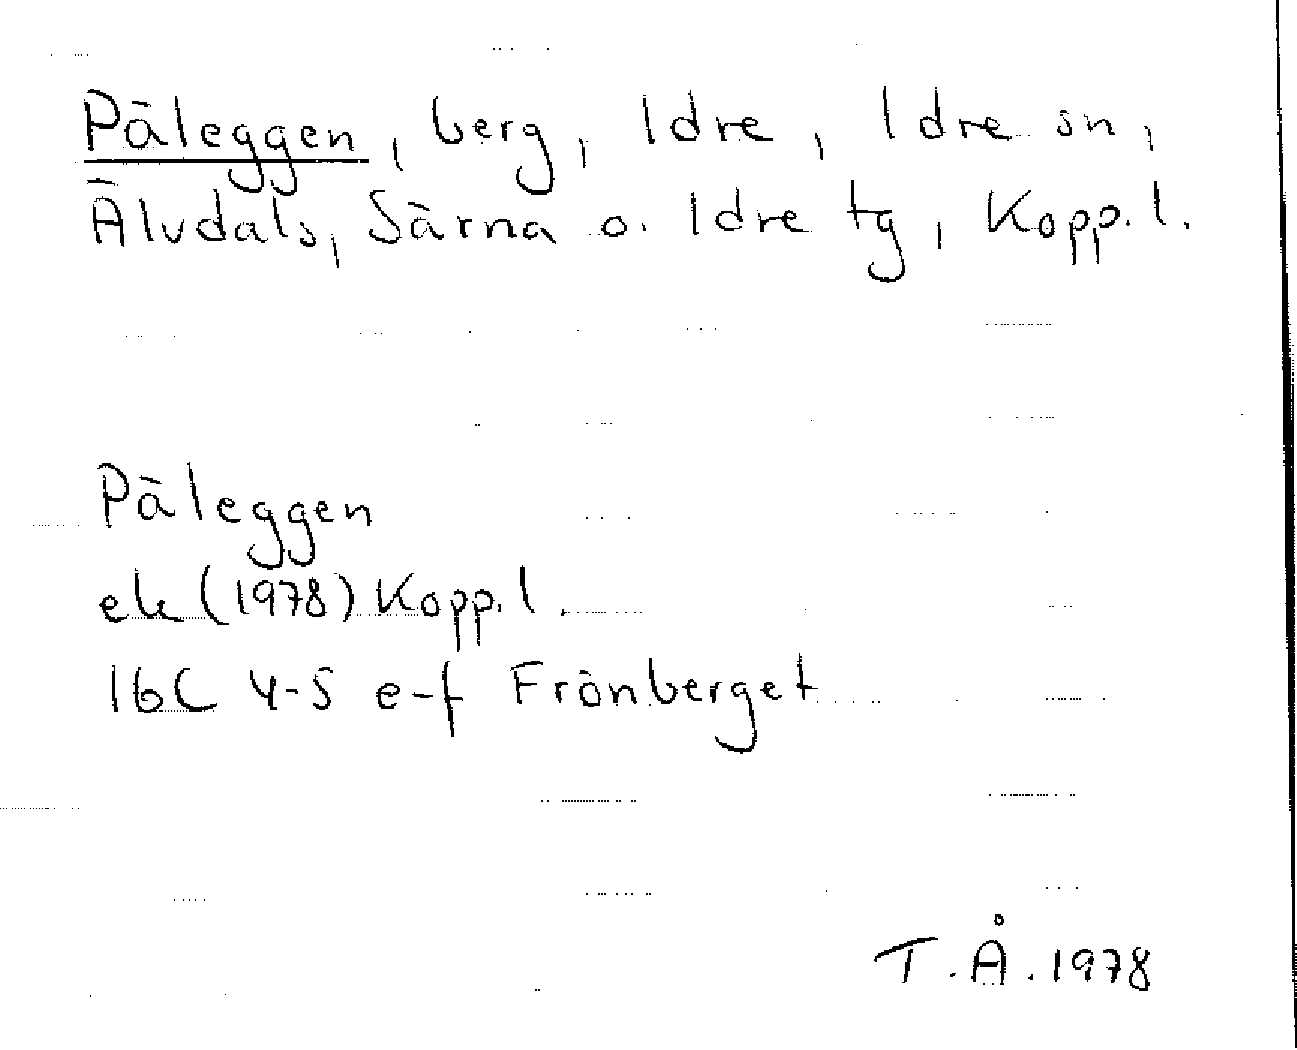 Päleggen, berg, Idre, Idre sn,
Älvdals, Särna o. Idre tg, Kopp. l.
Päleggen
ek (1978) Kopp. l.
16C 4-5 e-f Frönberget
T.Å. 1978